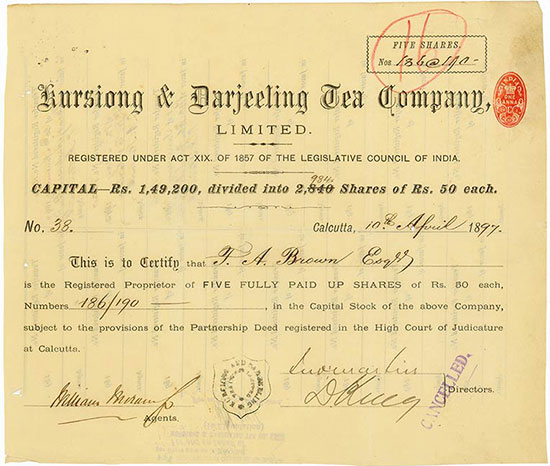 16
FIVE SHARES.
Nos. 186@190-
INDIA
ONE ANNA
Kursiong & Darjeeling Tea Company,
LIMITED.
REGISTERED UNDER ACT XIX. OF 1857 OF THE LEGISLATIVE COUNCIL OF INDIA.
984
CAPITAL—Rs. 1,49,200, divided into 2,840 Shares of Rs. 50 each.
No. 38. Calcutta, 10th April 1897.
This is to Certify that F. A. Brown Esqre
is the Registered Proprietor of FIVE FULLY PAID UP SHARES of Rs. 50 each,
Numbers 186/190 —, in the Capital Stock of the above Company,
subject to the provisions of the Partnership Deed registered in the High Court of Judicature
at Calcutta.
KURSIONG AND DARJEELING
D King
CANCELLED.
Directors.
Agents.